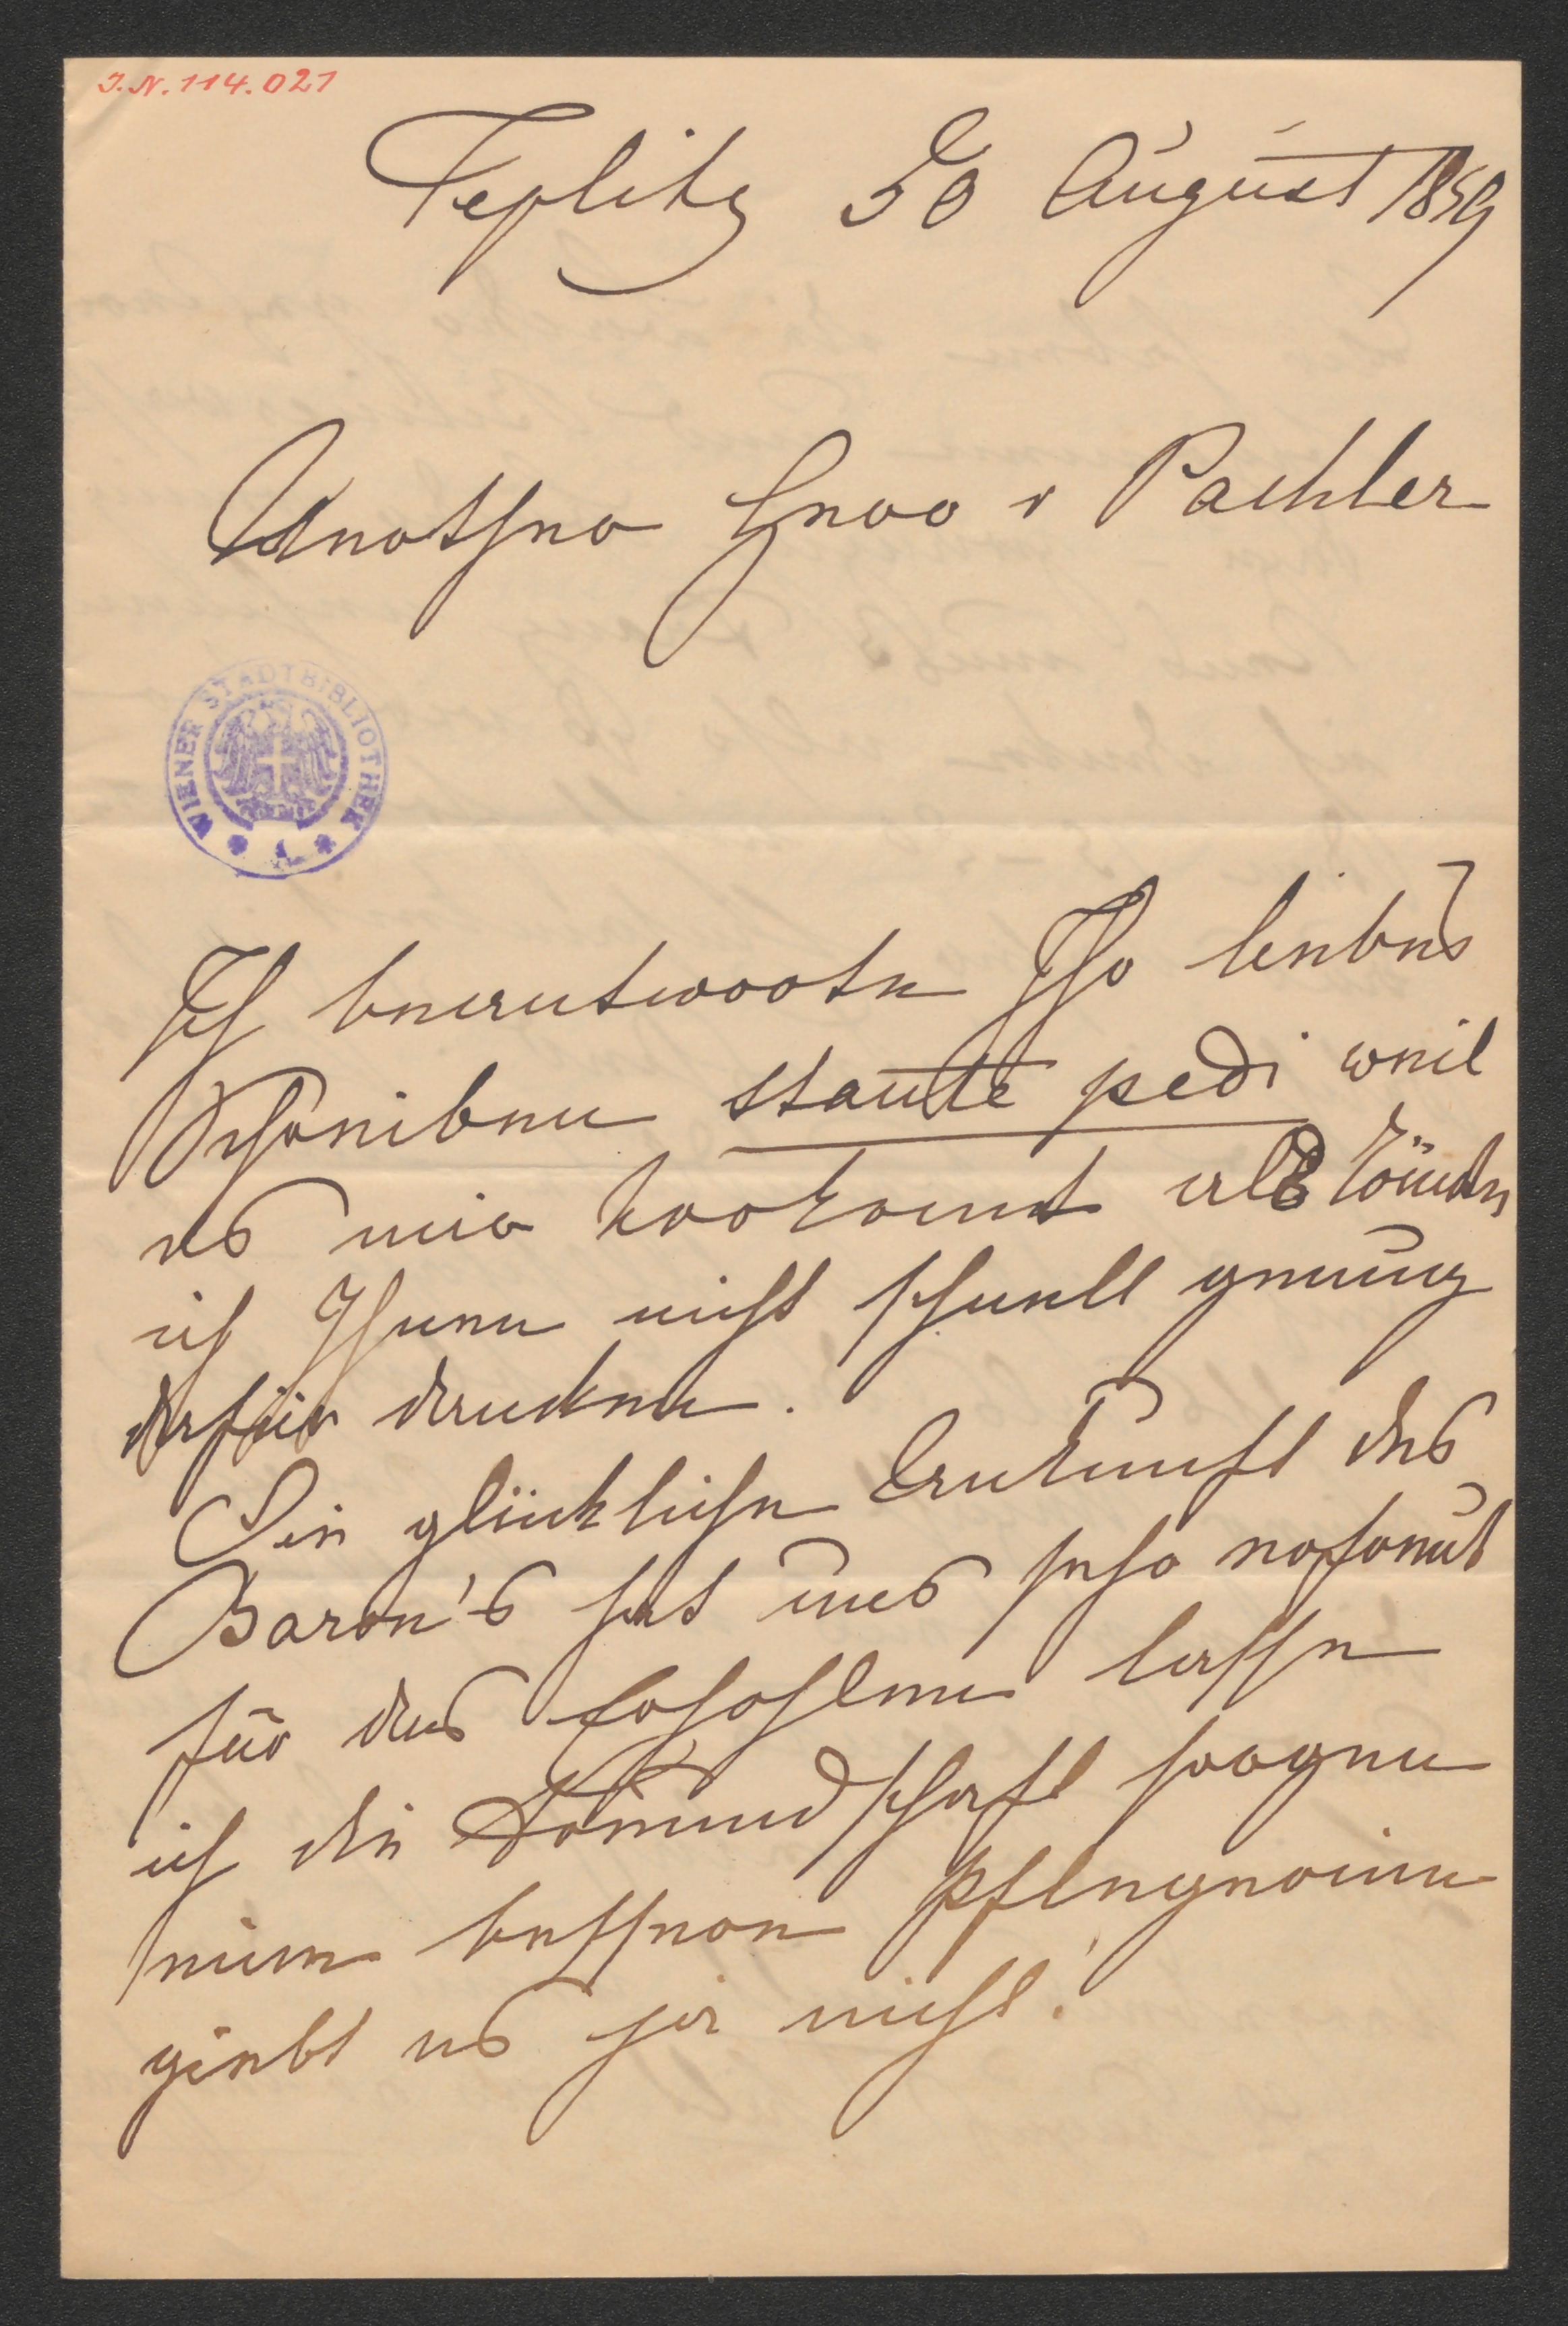 I.N. 114.021
Teplitz 30 August 1859
Verehrter Herr v Pachler
WIENER STADTBIBLIOTHEK
Ich beantworte Ihr liebes
Schreiben stante pedi weil
es mir vorkomt als könte
ich Ihnen nicht schnell genug
dafür danken.
Die glückliche Ankunft des
Baron's hat uns sehr erfreut
für das lassen
ich die sorgen
eine bessere Pflegerinn
giebt es ja nicht!